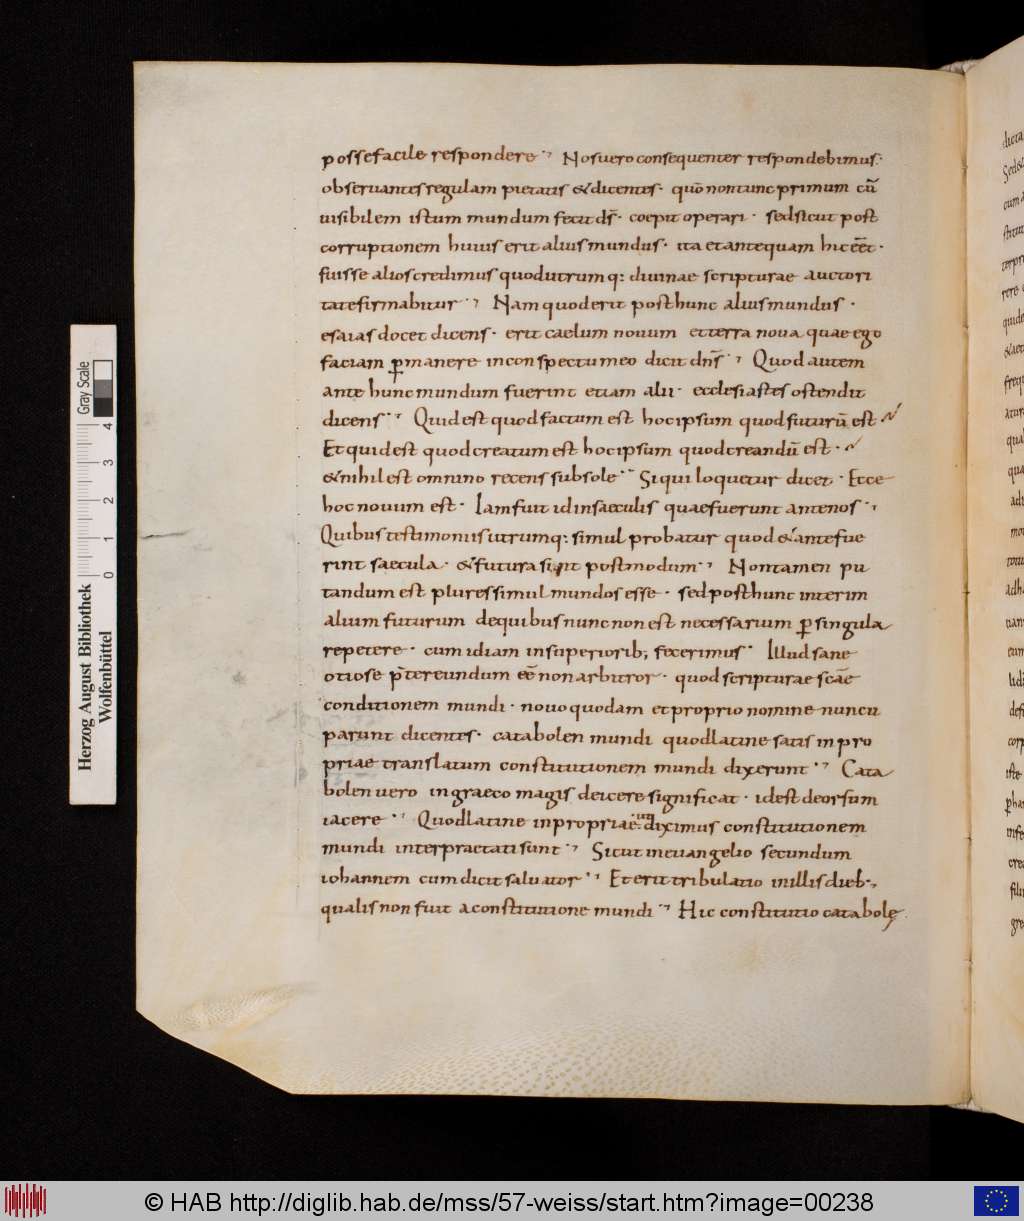 possefacile respondere·, Nosuero consequenter respondebimus·
obseruantes regulam pietatis &dicentes· quō nontunc primum cū
uisibilem istum mundum fecit dš· coepit operari· sedsicut post
corruptionem huius erit alius mundus· ita et antequam hic eēt·
fuisse alios credimus quodutrumq: diuinae scripturae auctori
tatefirmabitur·, Nam quoderit posthunc alius mundus·
esaias docet dicens· erit caelum nouum et terra noua quae ego
faciam p̄manere inconspectu meo dicit dns̄·, Quod autem
ante hunc mundum fuerint etiam alii· ecclesiastes ostendit
dicens·, Quidest quod factum est hocipsum quod futurū est·
Et quidest quod creatum est hocipsum quodcreandū est·
&nihilest omnino recens subsole·, Siqui loquetur dicet· Ecce
hoc nouum est· Iamfuit idinsaeculis quaefuerunt antenos·,
Quibus testimoniis utrumq: simul probatur quod & antefue
rint saecula· &futura sint postmodum·, Nontamen pu
tandum est pluressimul mundos esse· sed posthunc interim
alium futurum dequibus nunc non est necessarium p̄ singula
repetere· cum idiam insuperiorib; fecerimus· Illud sane
otiose p̄tereundum eē non arbitror· quod scripturae scāe
conditionem mundi· nouo quodam et proprio nomine nuncu
parunt dicentes· catabolen mundi quodlatine satis inpro
priae translatum constitutionem mundi dixerunt·, Cata
bolen uero ingraeco magis deicere significat· idest deorsum
iacere·, Quodlatine inpropriae· ut diximus constitutionem
mundi interpraetati sunt·, Sicut ineuangelio secundum
iohannem cum dicit saluator·, Et erit tribulatio inillis dieb·,
qualis non fuit aconstitutione mundi·, Hic constitutio catabolę
Herzog August Bibliothek
Wolfenbüttel
0 1 2 3 4
Gray Scale
© HAB http://diglib.hab.de/mss/57-weiss/start.htm?image=00238